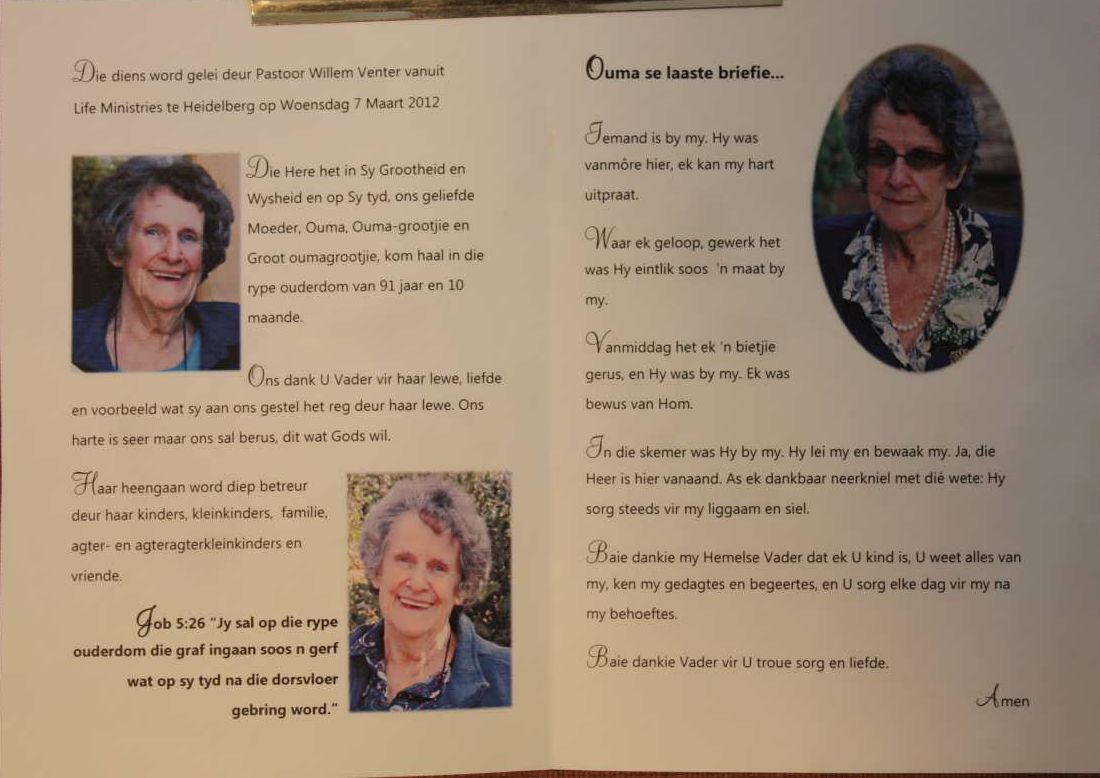 Die diens word gelei deur Pastoor Willem Venter vanuit
Life Ministries te Heidelberg op Woensdag 7 Maart 2012
Die Here het in Sy Grootheid en
Wysheid en op Sy tyd, ons geliefde
Moeder, Ouma, Ouma-grootjie en
Groot oumagrootjie, kom haal in die
rype ouderdom van 91 jaar en 10
maande.
Ons dank U Vader vir haar lewe, liefde
en voorbeeld wat sy aan ons gestel het reg deur haar lewe. Ons
harte is seer maar ons sal berus, dit wat Gods wil.
Haar heengaan word diep betreur
deur haar kinders, kleinkinders, familie,
agter- en agteragterkleinkinders en
vriende.
Job 5:26 "Jy sal op die rype
ouderdom die graf ingaan soos n gerf
wat op sy tyd na die dorsvloer
gebring word."
Ouma se laaste briefie...
Iemand is by my. Hy was
vanmôre hier, ek kan my hart
uitpraat.
Waar ek geloop, gewerk het
was Hy eintlik soos 'n maat by
my.
Vanmiddag het ek 'n bietjie
gerus, en Hy was by my. Ek was
bewus van Hom.
In die skemer was Hy by my. Hy lei my en bewaak my. Ja, die
Heer is hier vanaand. As ek dankbaar neerkniel met dié wete: Hy
sorg steeds vir my liggaam en siel.
Baie dankie my Hemelse Vader dat ek U kind is, U weet alles van
my, ken my gedagtes en begeertes, en U sorg elke dag vir my na
my behoeftes.
Baie dankie Vader vir U troue sorg en liefde.
Amen